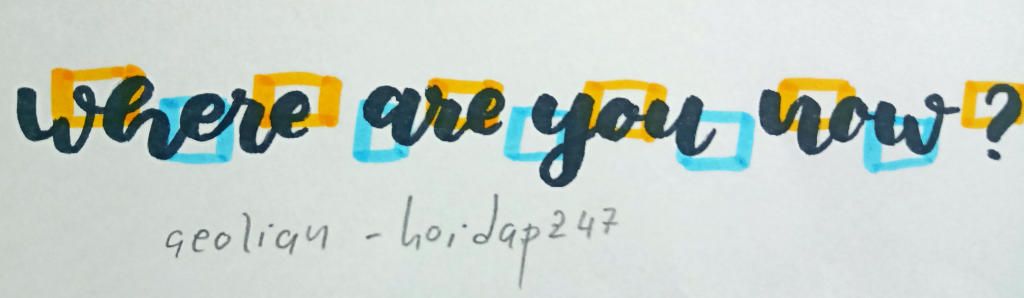 where are you now?
aeolian - hoidap247